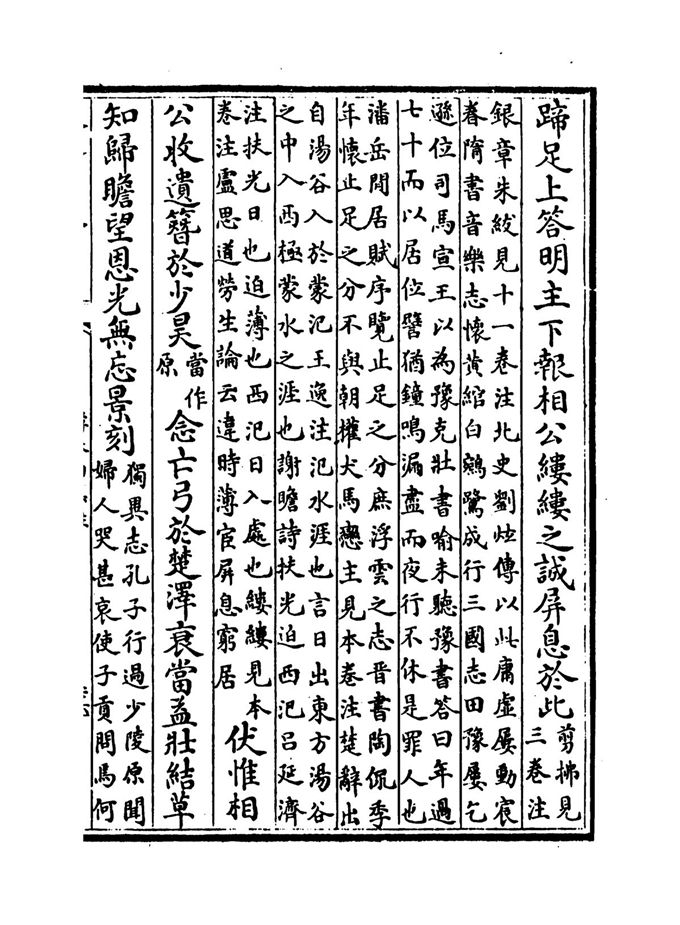 蹄足上答明主下報相公縷縷之誠屏息於此剪拂見
三卷注
銀章朱紱見十一卷注北史劉炫傳以此庸虛屢動宸
眷隋書音樂志懷黃綰白鵷鷺成行三國志田豫屢乞
遜位司馬宣王以為豫克壯書喻未聽豫書答曰年過
七十而以居位譬猶鐘鳴漏盡而夜行不休是罪人也
潘岳閒居賦序覽止足之分庶浮雲之志晉書陶侃季
年懷止足之分不與朝權犬馬戀主見本卷注楚辭出
自湯谷入於蒙汜王逸注汜水涯也言日出東方湯谷
之中入西極蒙水之涯也謝瞻詩扶光迫西汜呂延濟
注扶光日也迫薄也西汜日入處也縷縷見本
卷注盧思道勞生論云違時薄宦屏息窮居
伏惟相
公收遺簪於少昊當作
原
念亡弓於楚澤哀當益壯結草
知歸瞻望恩光無忘景刻獨異志孔子行過少陵原聞
婦人哭甚哀使子貢問焉何